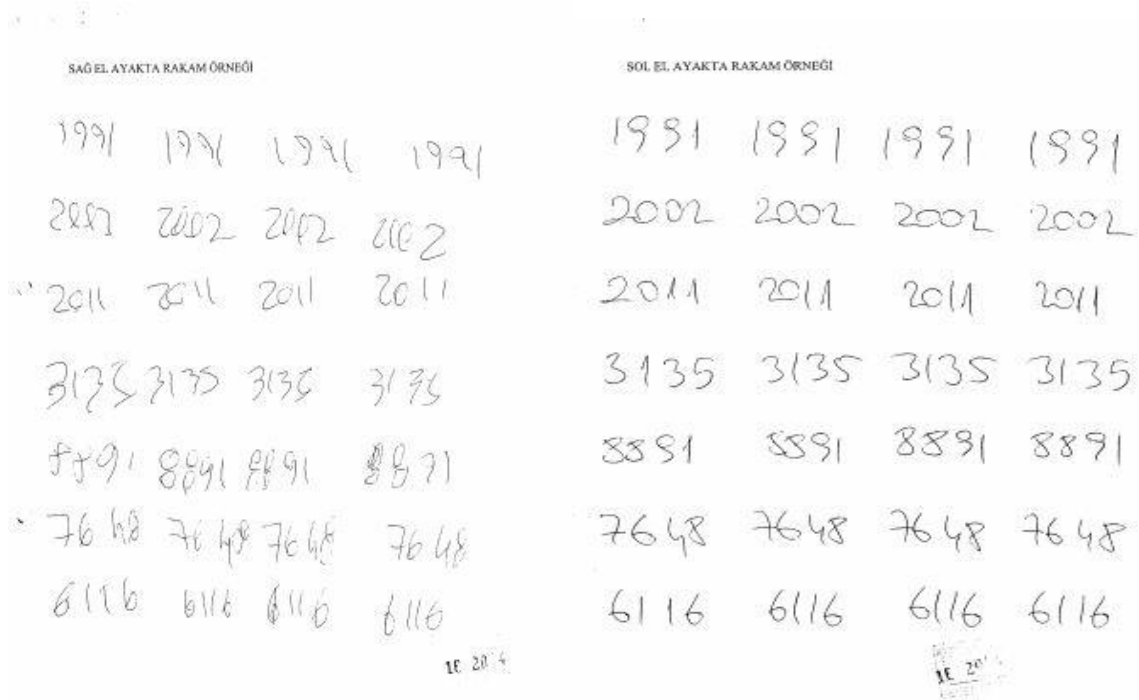 SAĞ EL AYAKTA RAKAM ÖRNEĞİ
1991 1991 1991 1991
2002 2002 2002 2002
2011 2011 2011 2011
3135 3135 3135 3135
8891 8891 8891 8891
7648 7648 7648 7648
6116 6116 6116 6116
SOL EL AYAKTA RAKAM ÖRNEĞİ
1991 1991 1991 1991
2002 2002 2002 2002
2011 2011 2011 2011
3135 3135 3135 3135
8891 8891 8891 8891
7648 7648 7648 7648
6116 6116 6116 6116